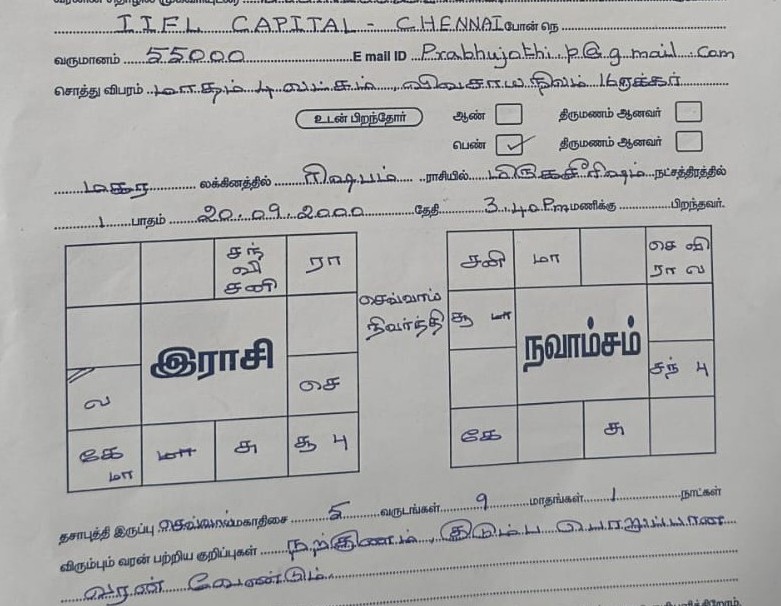 IIFL CAPITAL - CHENNAI போன் நெ
வருமானம் 55000 E mail ID Prabhujothi.p@g.mail.com
சொத்து விபரம் மாதம் 4 லட்சம், விவசாய நிலம் 16 ஏக்கர்
உடன் பிறந்தோர் ஆண் திருமணம் ஆனவர்
பெண் ✓ திருமணம் ஆனவர்
மகர லக்கினத்தில் ரிஷபம் ராசியில் மிருகசீரிஷம் நட்சத்திரத்தில்
1 பாதம் 20.09.2000 தேதி 3.40 Pm மணிக்கு பிறந்தவர்.
சந் வி சனி ரா
செவ்வாய் நிவர்த்தி
இராசி
ல செ
கே மா மா சு சூ பு
சனி மா செ வி ரா ல
சூ மா
நவாம்சம்
சந் பு
கே சு
தசாபுத்தி இருப்பு செவ்வாய் மகாதிசை 5 வருடங்கள் 9 மாதங்கள் 1 நாட்கள்
விரும்பும் வரன் பற்றிய குறிப்புகள் நற்குணம், குடும்ப பொறுப்பான
வரன் வேண்டும்.